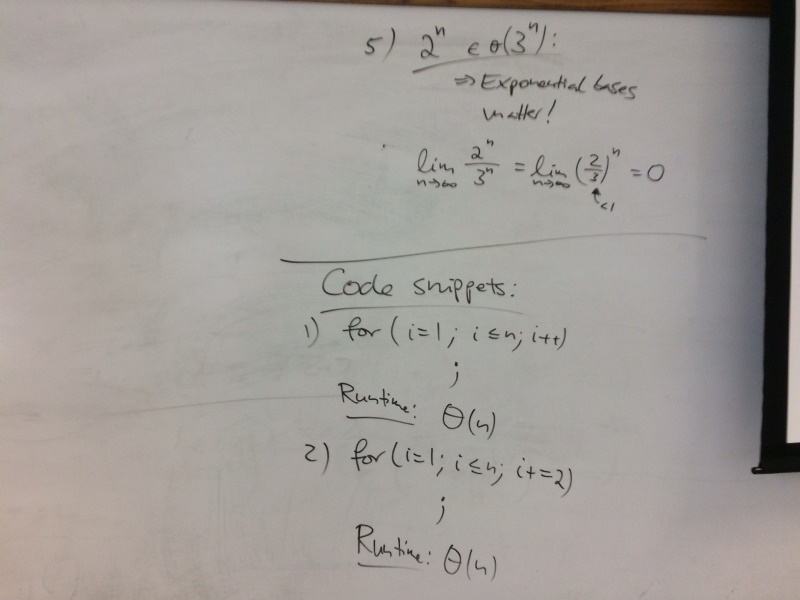 5) 2ⁿ ∈ o(3ⁿ):
⇒ Exponential bases
matter!
lim n→∞ 2ⁿ/3ⁿ = lim n→∞ (2/3)ⁿ = 0
↑ <1
Code snippets:
1) for (i=1; i≤n; i++)
;
Runtime: Θ(n)
2) for (i=1; i≤n; i+=2)
;
Runtime: Θ(n)